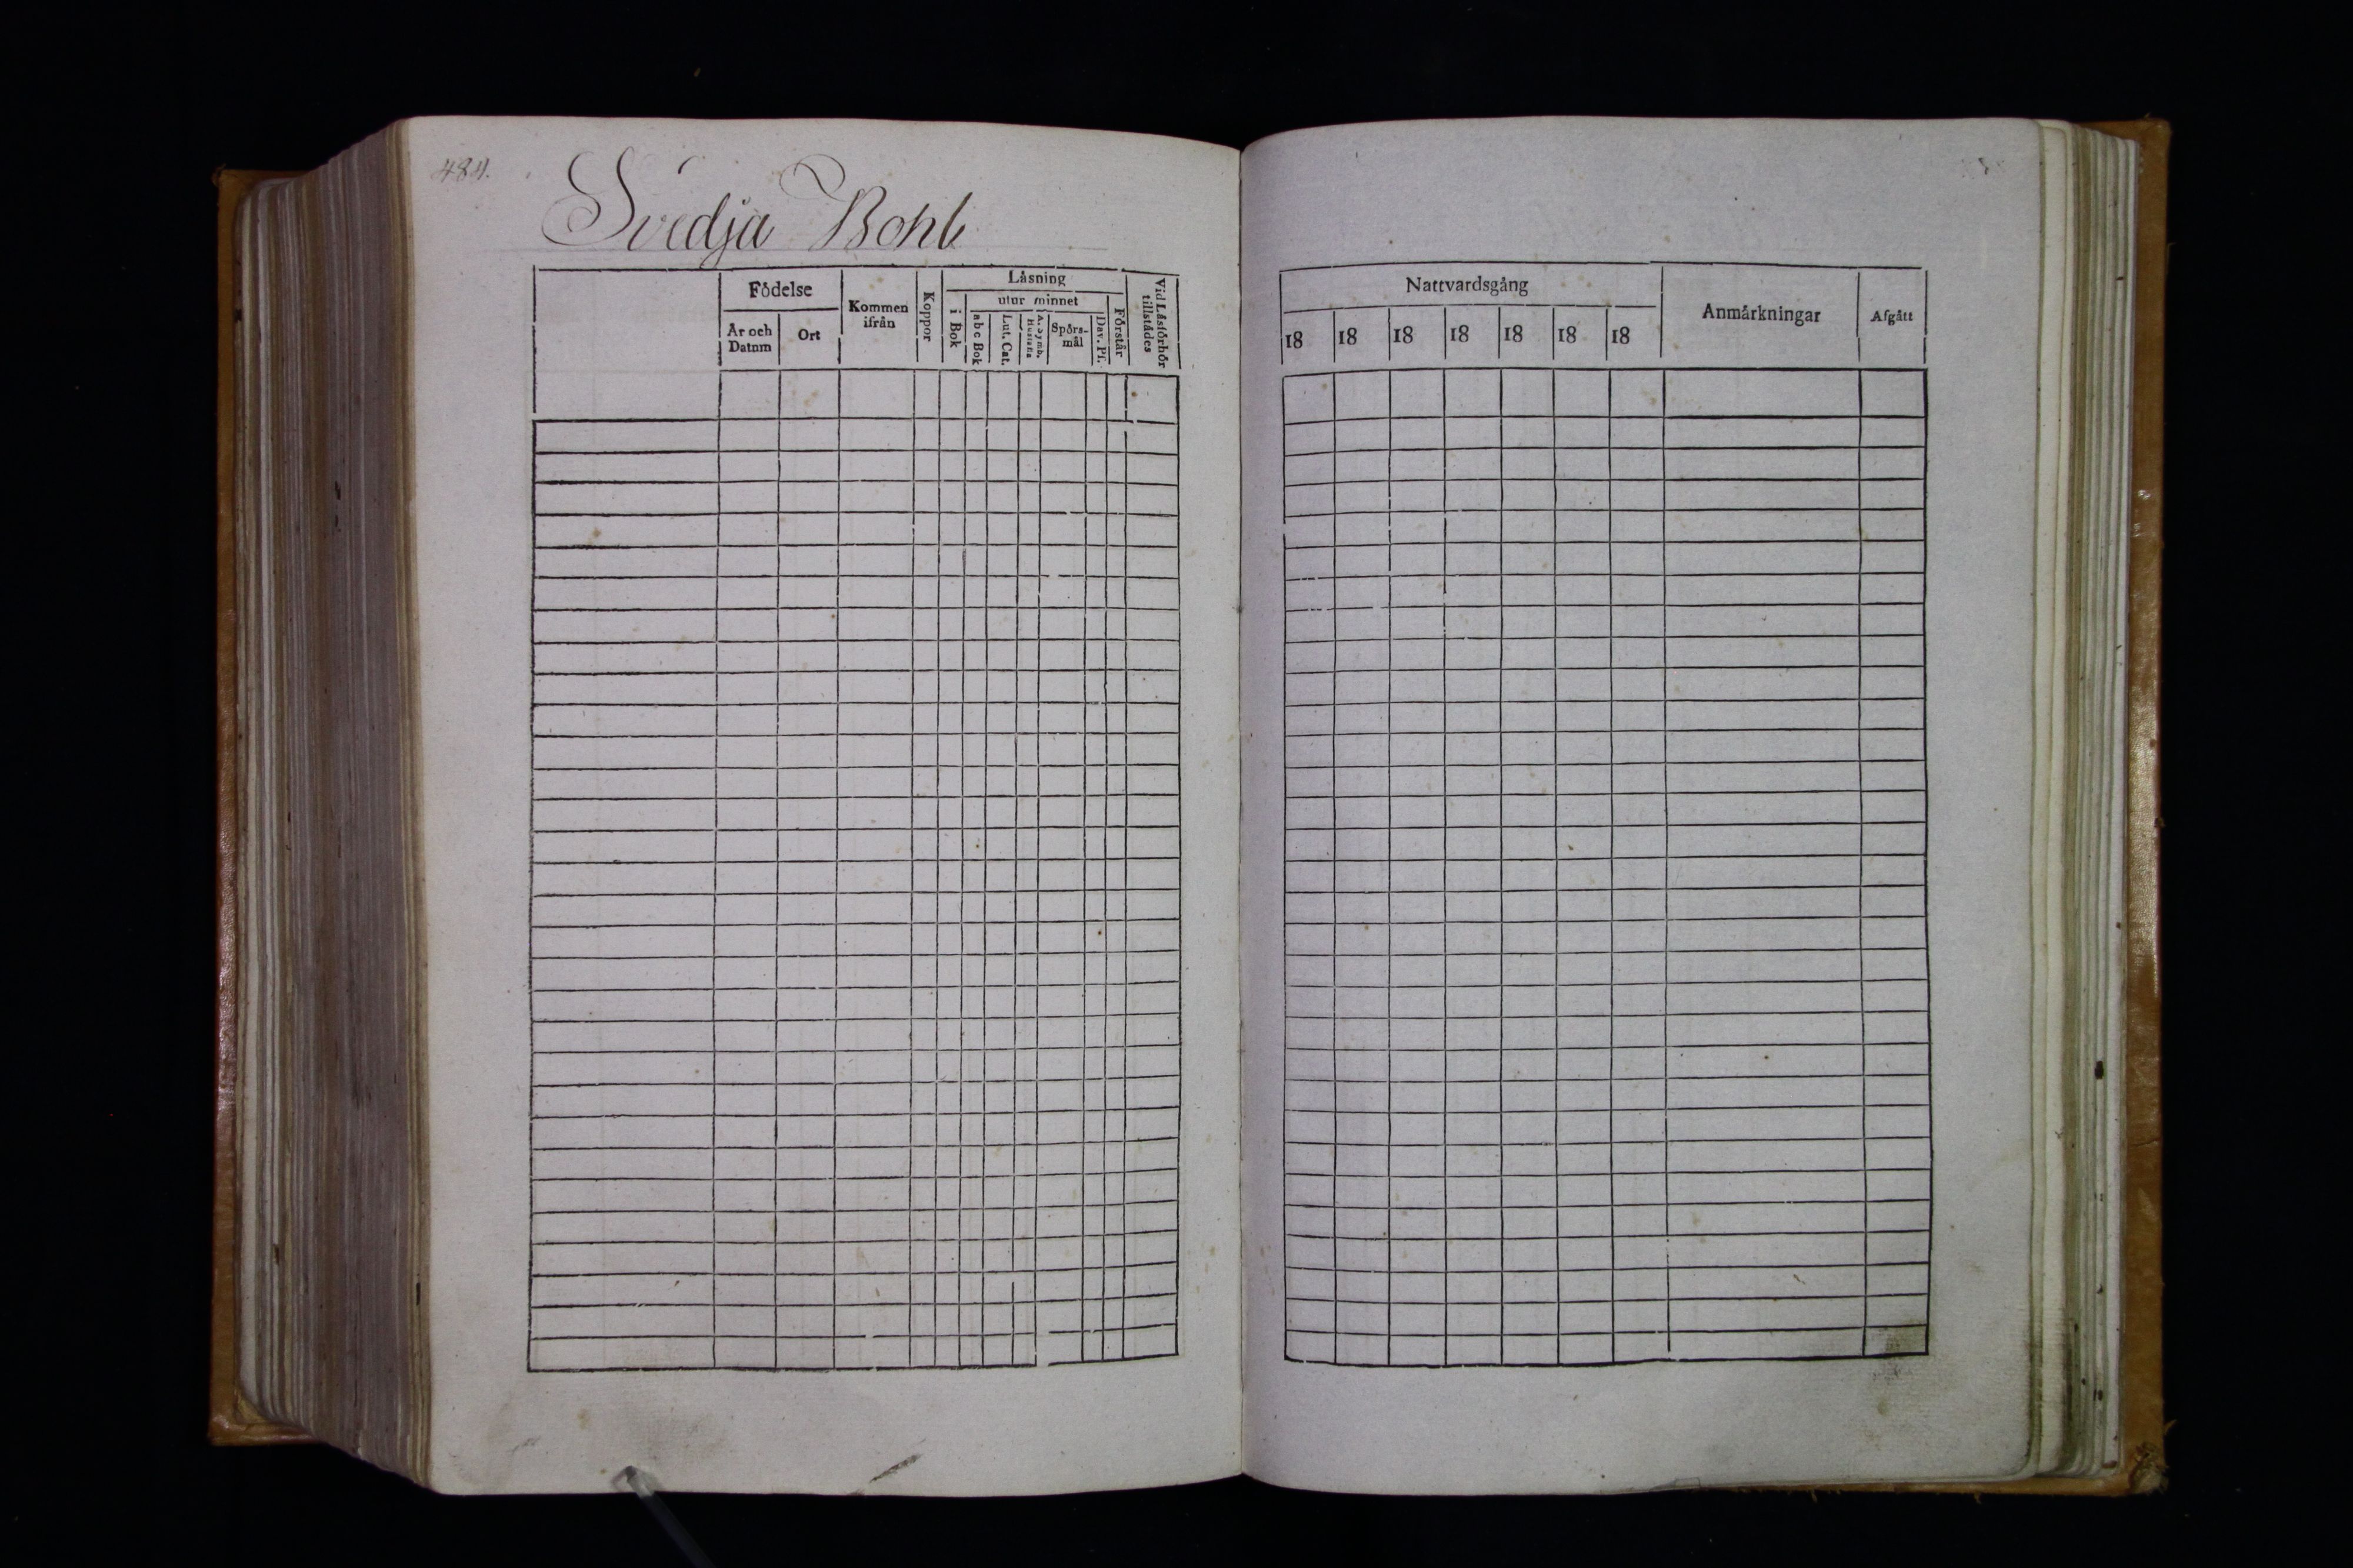 484.
Svedja Bohl
Födelse
År och
Datum
Ort
Kommen
ifrån
Koppor
Läsning
i Bok
utur minnet
abc Bok
Lut. Cat.
A. Symb.
Hustafla
Spörs-
mål
Dav. Ps.
Förstår
Vid Läsförhör
tillstädes
Nattvardsgång
18 18 18 18 18 18 18
Anmärkningar
Afgått